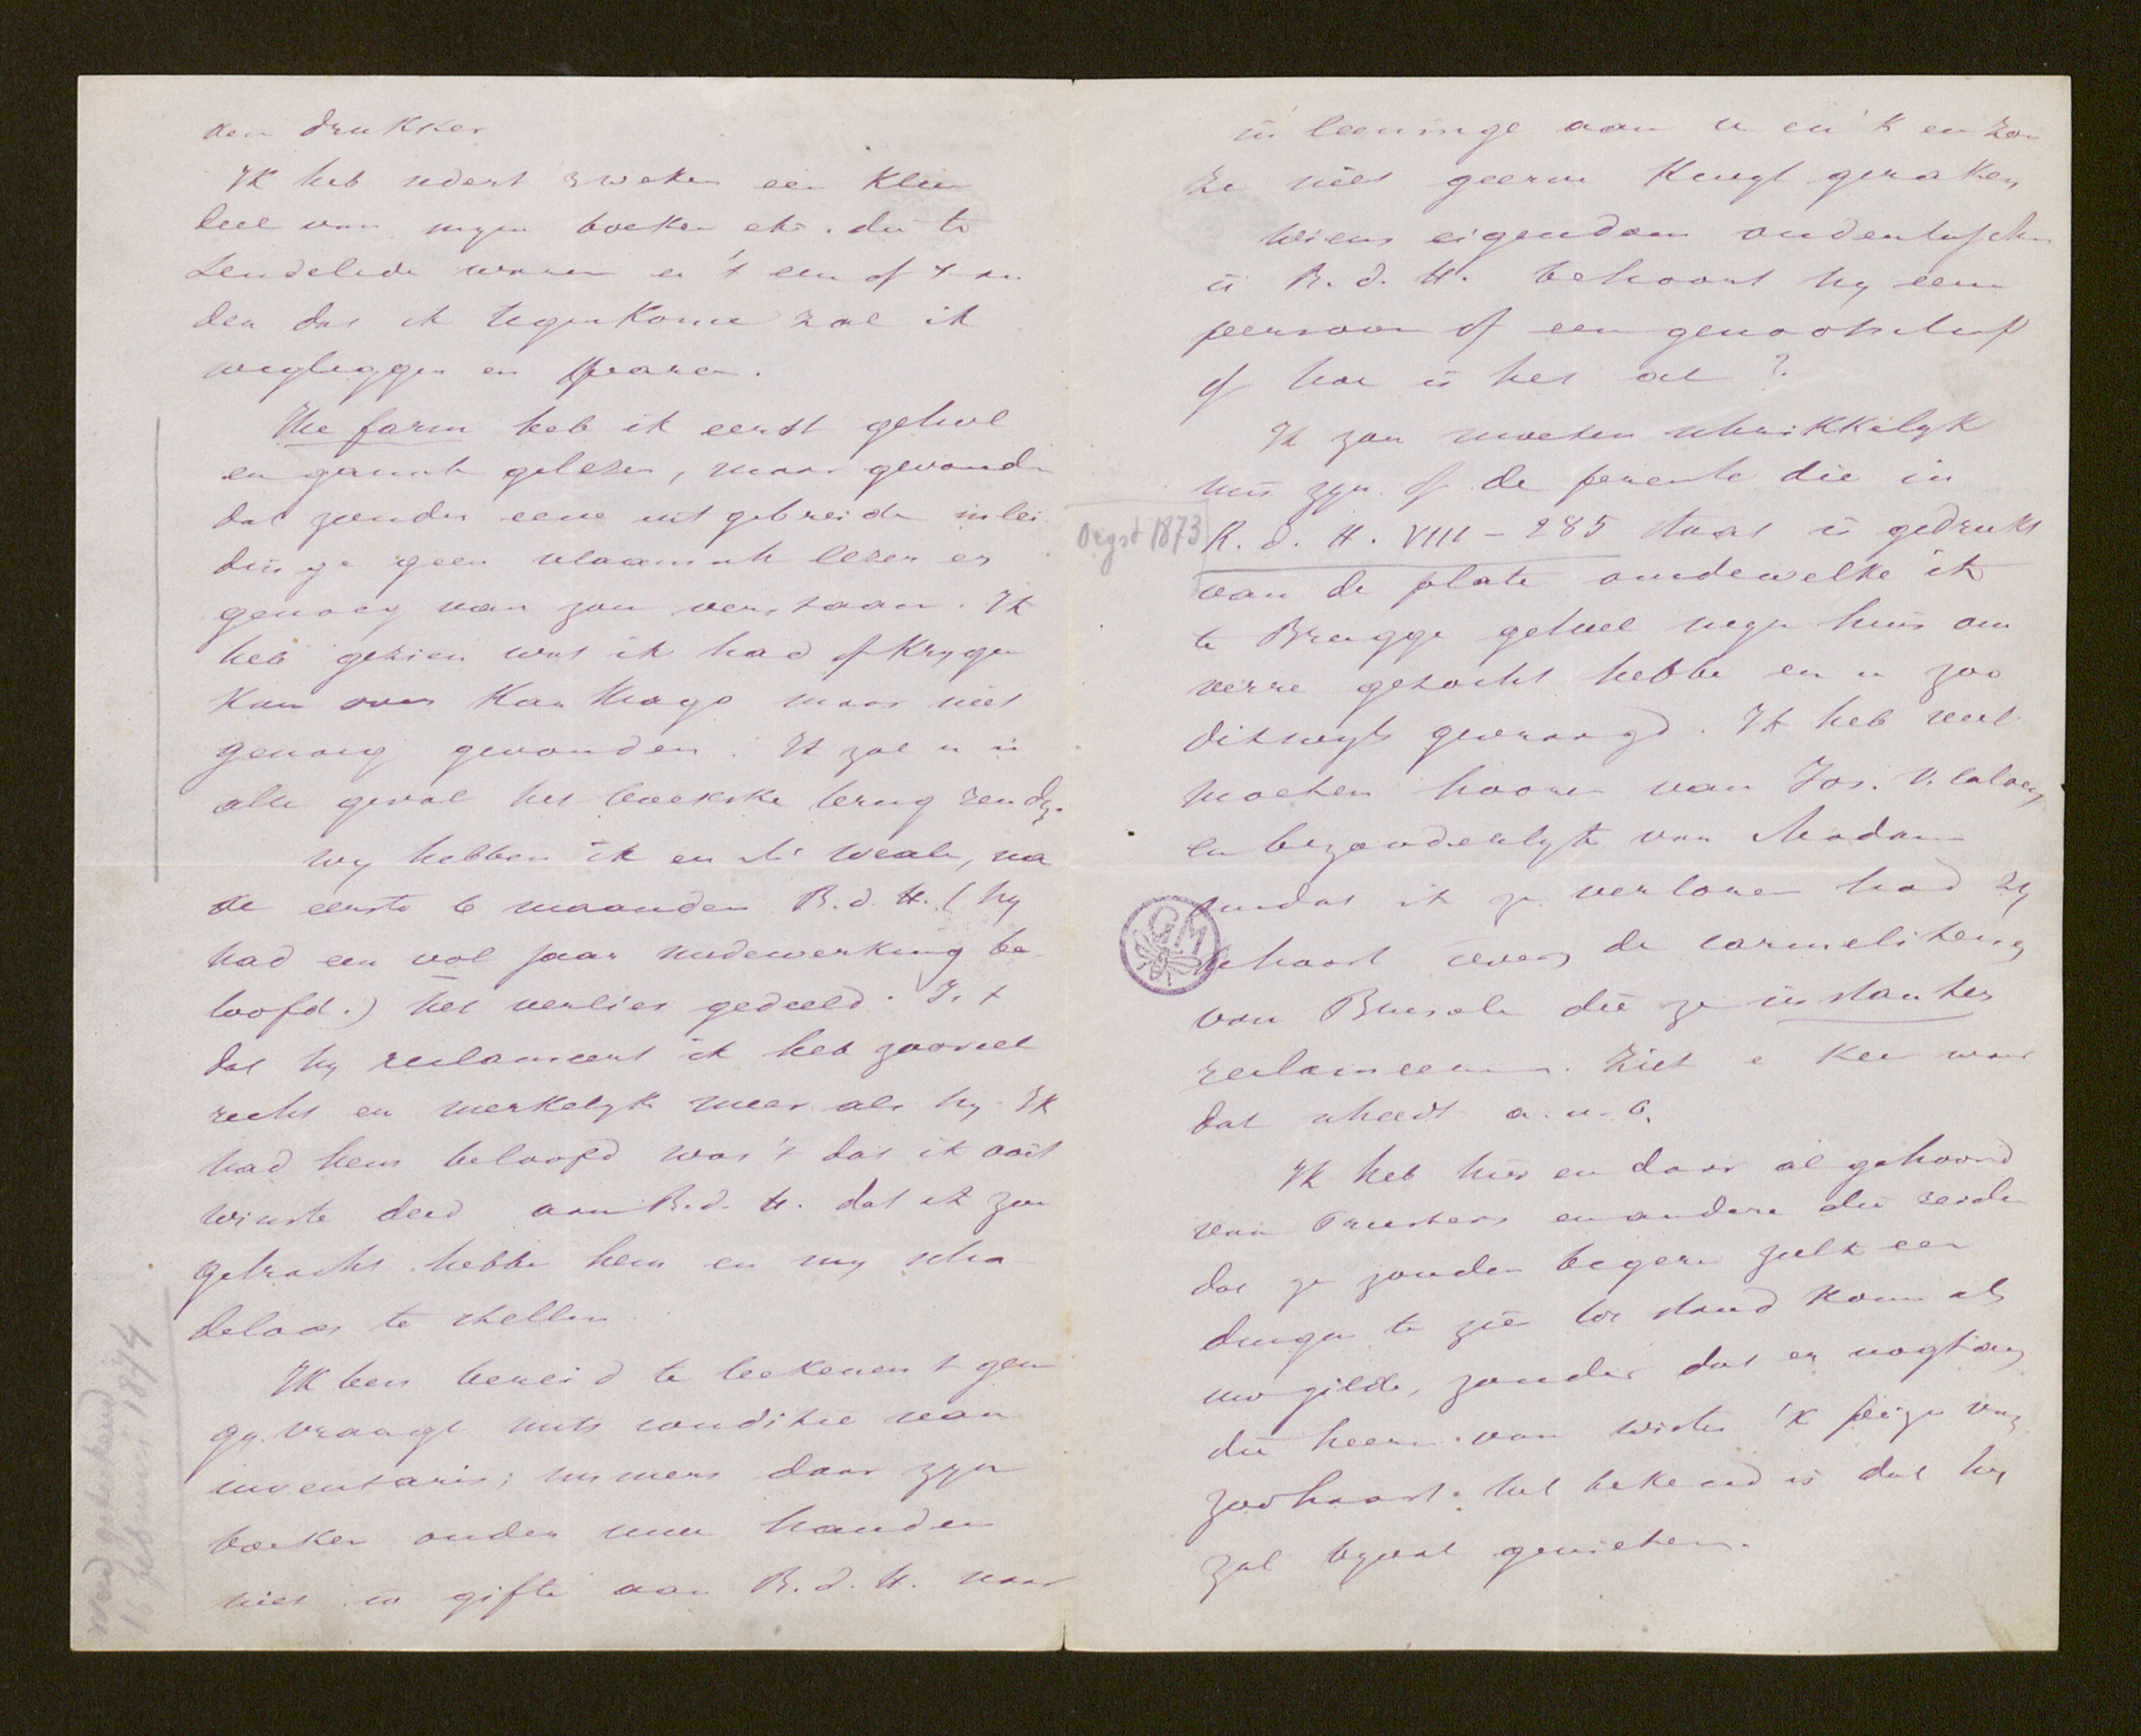 den drukker
Ik heb sedert 3 weken een klein
deel van myne boeken etc. die te
Lendelede waren en 't een of 't an
der dat ik tegenkome zal ik
wegleggen en sparen.
The farm heb ik eerst geheel
en gansch gelezen, maar gevonden
dat zonder eene uitgebreide inlei
dinge geen vlaamsch lezer er
genoeg van zou verstaan. Ik
heb gezien wat ik had of krygen
kan over Karthago maar niet
genoeg gevonden. Ik zal u in
alle geval het boekske terug zenden.
Wy hebben ik en Mr Weale, na
de eerste 6 maanden R.d.H. (hy
had een vol jaar medewerking be
loofd.) het verlies gedeeld. Is 't
dat hy reclameert ik heb zooveel
recht en merkelyk meer als hy. Ik
had hem beloofd was 't dat ik ooit
winste deed aan R.d.H. dat ik zou
getracht hebbe hem en my scha
deloos te stellen.
Ik ben bereid te teekenen 't gene
gy vraagt mits conditie van
inventaris; immers daar zyn
boeken onder uwe handen
niet in gifte aan R.d.H. maar
in leeninge aan u en 'k en zou
ze niet geerne kwyt geraken
Wiens eigendom ondertusschen
is R.d.H. behoort hy eenen
persoon of een genootschap
of hoe is het al?
Ik zou moeten schrikkelyk
mis zyn of de prente die in
Oegst 1873
R.d.H. VIII - 285 staat is gedrukt
van de plate omdewelke ik
te Brugge geheel myn huis om
verre gezocht hebbe en u zoo
dikwyls gevraagd. Ik heb veel
moeten hooren van Jos.
en bezonderlyk van Madam
omdat ik ze verloren had zy
behoort tevens de carmelitens
van Brussele die ze instanter
reclameeren. Ziet e keer waar
dat scheedt a.u.b.
GM
Ik heb hier en daar al gehoord
van Priesters en andere die zeiden
dat ze zouden begeren zulk een
dingen te zien tot stand komen als
uw gilde, zonder dat er nogtans
die heeren van wisten 'k peize van
zoohaast het bekend is dat hy
zal byval genieten.
werd gedrukt
16 februari 1874